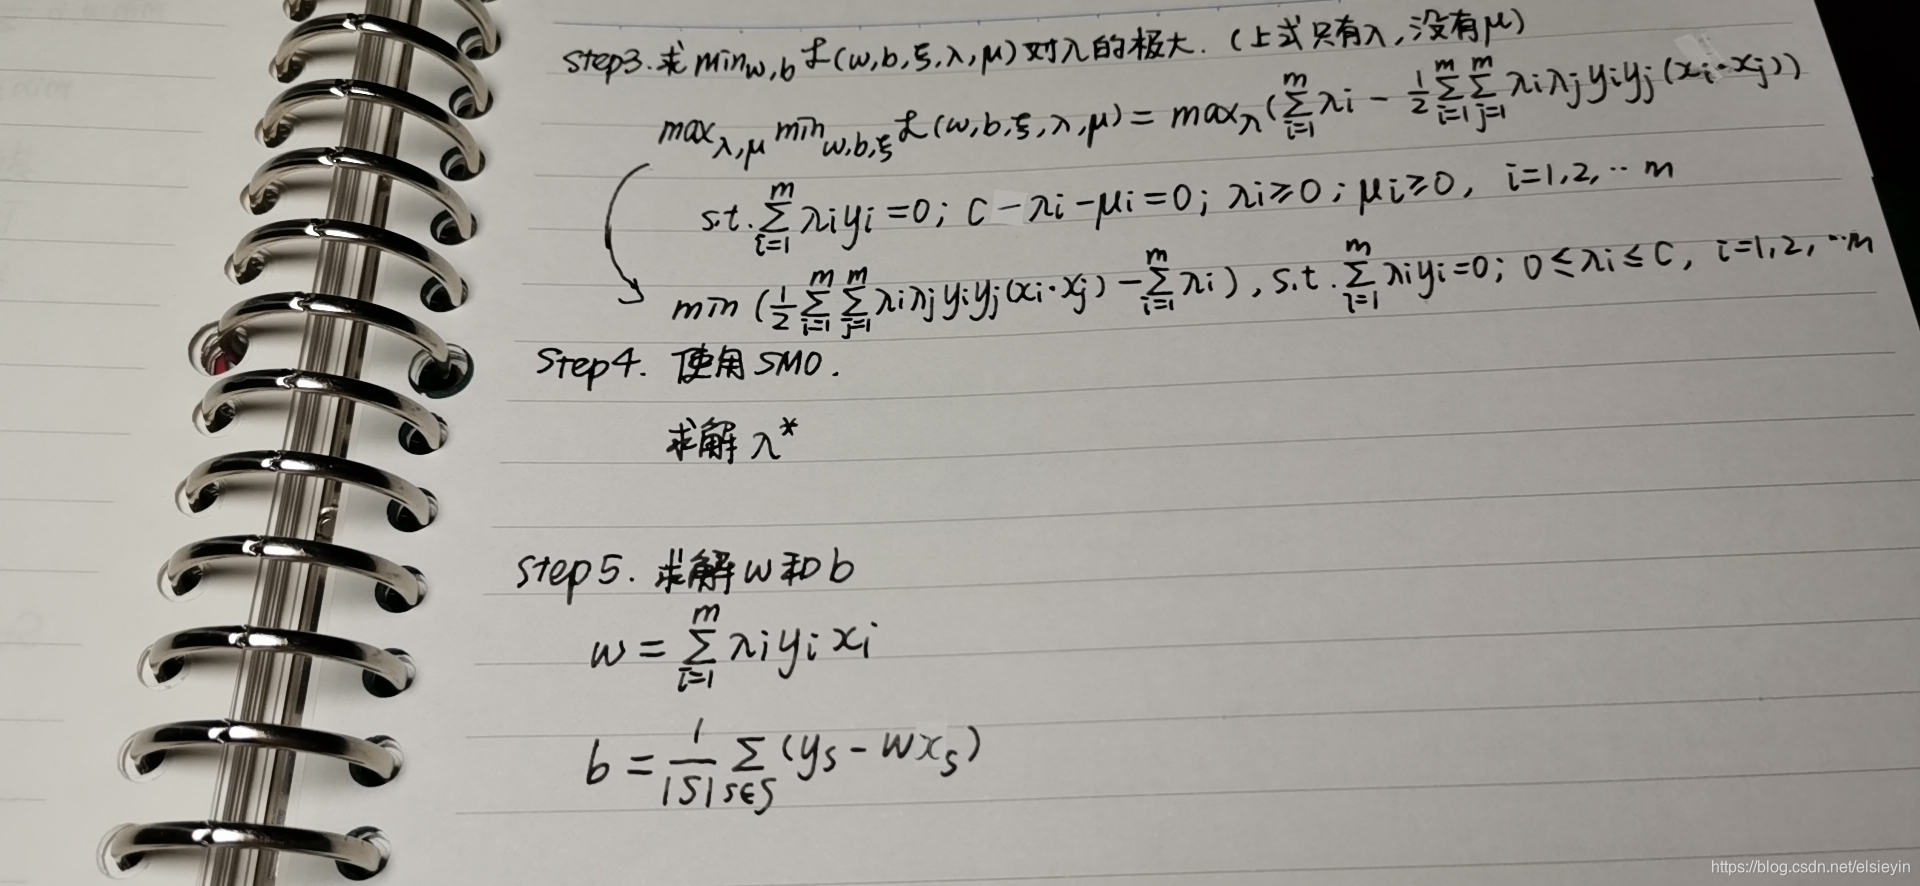 step3. 求 min_{w,b} ℒ(w,b,ξ,λ,μ) 对λ的极大. (上式只有λ,没有μ)
max_{λ,μ} min_{w,b,ξ} ℒ(w,b,ξ,λ,μ) = max_λ (∑_{i=1}^{m} λi − 1/2 ∑_{i=1}^{m} ∑_{j=1}^{m} λiλj yiyj (xi·xj))
s.t. ∑_{i=1}^{m} λiyi = 0; C − λi − μi = 0; λi ≥ 0; μi ≥ 0, i=1,2,… m
min (1/2 ∑_{i=1}^{m} ∑_{j=1}^{m} λiλj yiyj (xi·xj) − ∑_{i=1}^{m} λi), s.t. ∑_{i=1}^{m} λiyi = 0; 0 ≤ λi ≤ C, i=1,2,…m
Step4. 使用SMO.
求解 λ*
Step5. 求解w和b
w = ∑_{i=1}^{m} λi yi xi
b = 1/|S| ∑_{s∈S} (ys − wxs)
https://blog.csdn.net/elsieyin